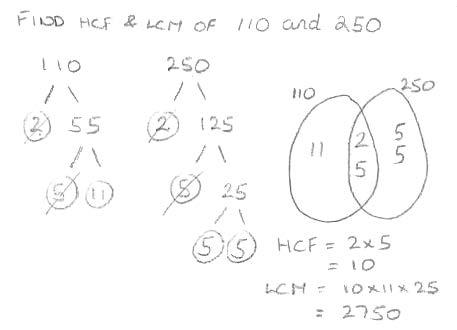 FIND HCF & LCM OF 110 and 250
110
250
2 55
2 125
5 11
5 25
5 5
110
250
11
2
5
5
5
HCF = 2×5
= 10
LCM = 10×11×25
= 2750